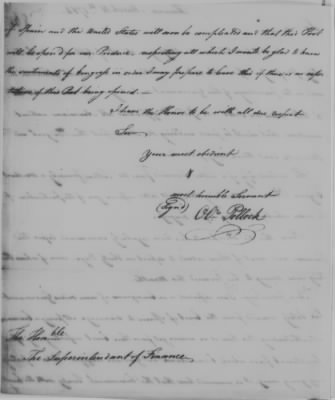 of Spain and the United States will soon be compleated and that this Port
will be opened for our Produce. respecting all which I wou'd be glad to know
the sentiments of Congress in order I may prepare to leave this if there is no
of this Port being opened.—
I have the Honor to be with all due respect
Sir
Your most obedient
&
most humble Servant
(Sign'd) Olr. Pollock
The Honble.
The Superintendant of Finance